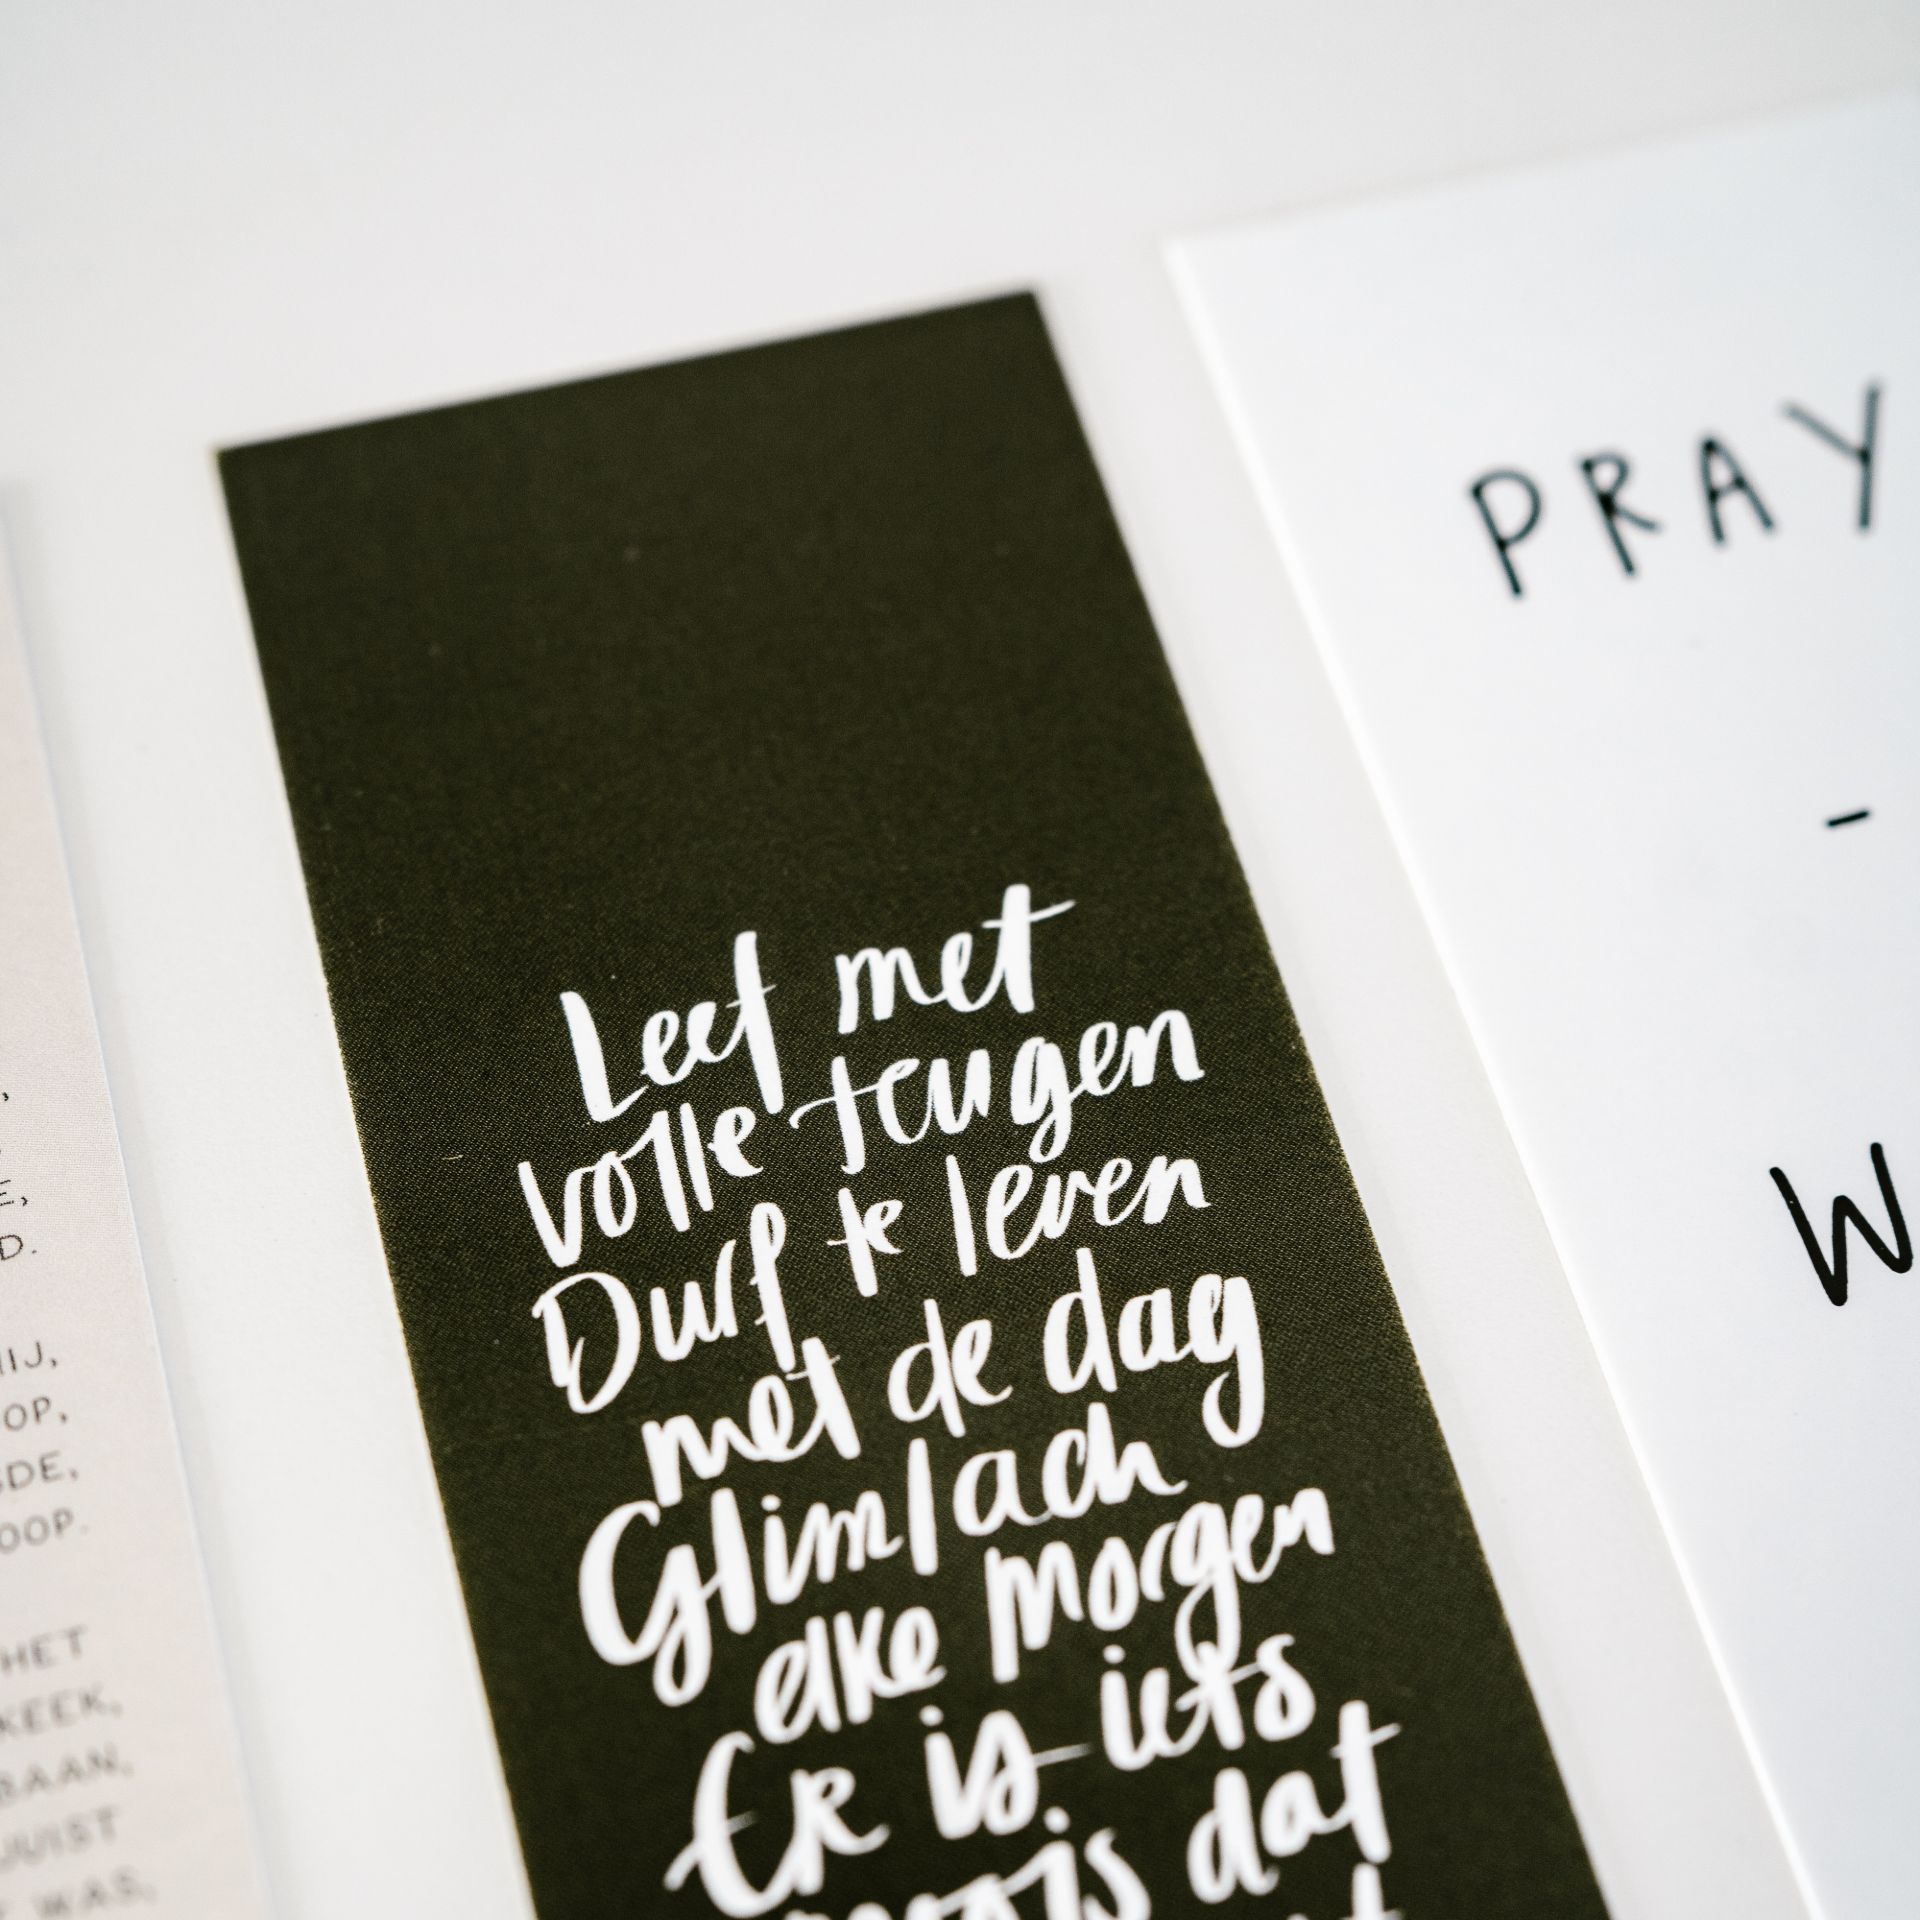 E,
D.
IJ,
OP,
DE,
OOP.
HET
KEEK,
BAAN,
JUIST
WAS,
Leef met
volle teugen
Durf te leven
met de dag
Glimlach
elke morgen
Er is iets
dat
PRAY
-
W